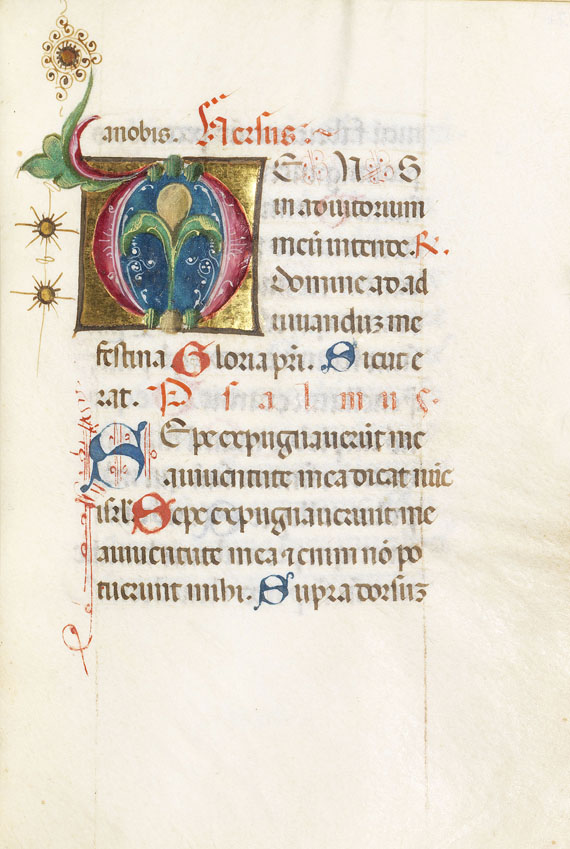 a nobis. Versus:~
DEUS
in adiutorium
meū intende. R.
domine ad ad
iuuanduꝫ me
festina Gloria pr̄i. Sicut e
rat. Psalmus.
Sepe expugnauerūt me
a iuuentute mea dicat nūc
isrl̄. Sepe expugnauerunt me
a iuuentute mea ⁊ enim nō po
tuerunt mihi. Supra dorsuꝫ